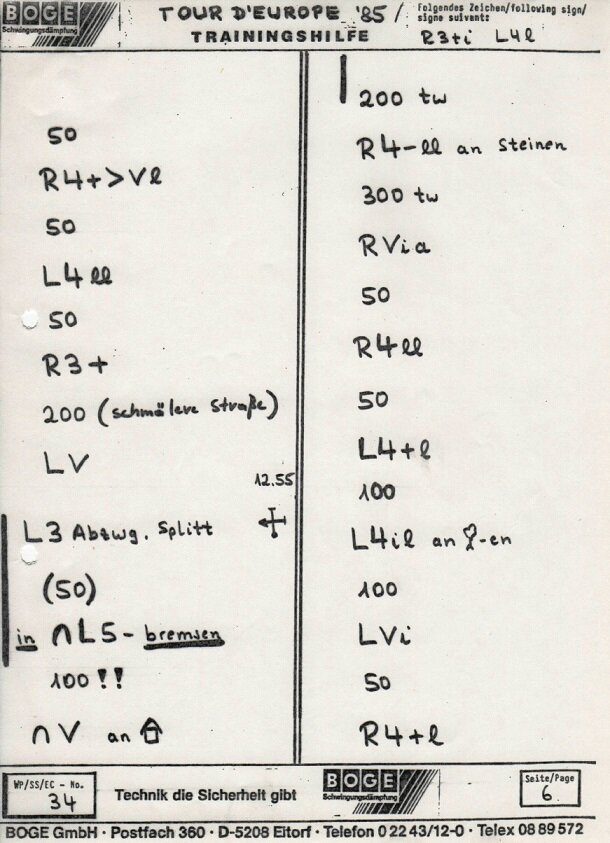 BOGE
Schwingungsdämpfung
TOUR D'EUROPE '85 /
TRAININGSHILFE
Folgendes Zeichen/following sign/
signe suivant:
R3+i L4l
50
R4+>Vl
50
L4ll
50
R3+
200 (schmälere Straße)
LV
12.55
L3 Abzwg. Splitt
(50)
in ∩L5- bremsen
100!!
∩V an
200 tw
R4-ll an Steinen
300 tw
RVia
50
R4ll
50
L4+l
100
L4il an -en
100
LVi
50
R4+l
WP/SS/EC - No.
34
Technik die Sicherheit gibt
BOGE
Schwingungsdämpfung
Seite/Page
6
BOGE GmbH · Postfach 360 · D-5208 Eitorf · Telefon 0 22 43/12-0 · Telex 08 89 572